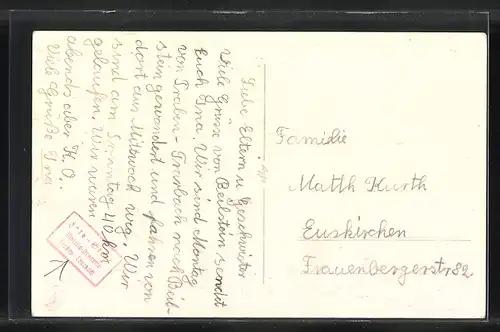 Liebe Eltern u Geschwister
Viele Grüsse von Beilstein sendet
Euch Ina. Wir sind Montag
von Traben-Trarbach nach Beil-
stein gewandert und fahren von
dort am Mittwoch weg. Wir
sind am Sonntag 40 km
gelaufen. Wir waren
abends aber K.O.
Viele Grüße Ina
Familie
Matth Kurth
Euskirchen
Frauenbergerstr 82